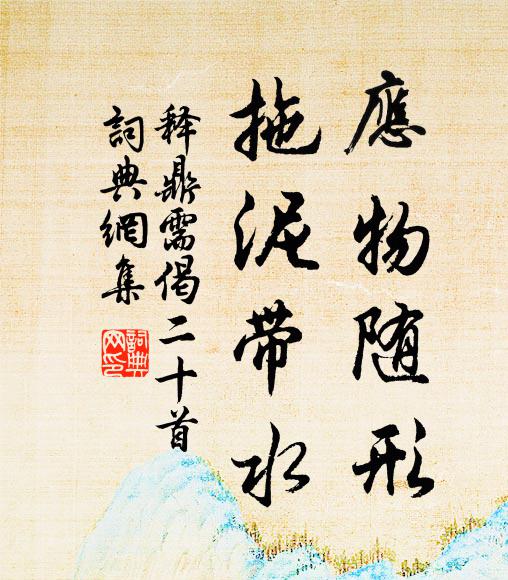 應物随形
拖泥带水
释鼎需偈二十首
詞典網集
詞典
网印